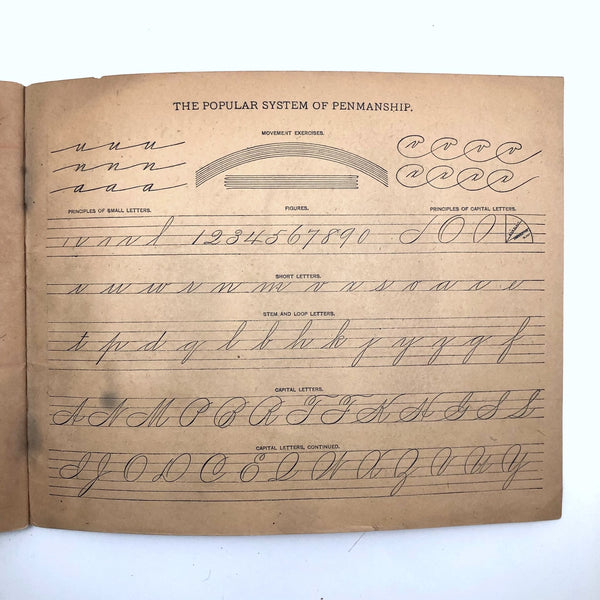 THE POPULAR SYSTEM OF PENMANSHIP.
MOVEMENT EXERCISES.
u u u
n n n
a a a
v v v v
PRINCIPLES OF SMALL LETTERS.
FIGURES.
PRINCIPLES OF CAPITAL LETTERS.
1234567890
SHORT LETTERS.
i u w r n m v x s o a c e
STEM AND LOOP LETTERS.
t p d q l b h k j y z g f
CAPITAL LETTERS.
A N M P B R T F K H G S L
CAPITAL LETTERS, CONTINUED.
I J O D C E Q W X Z V U Y